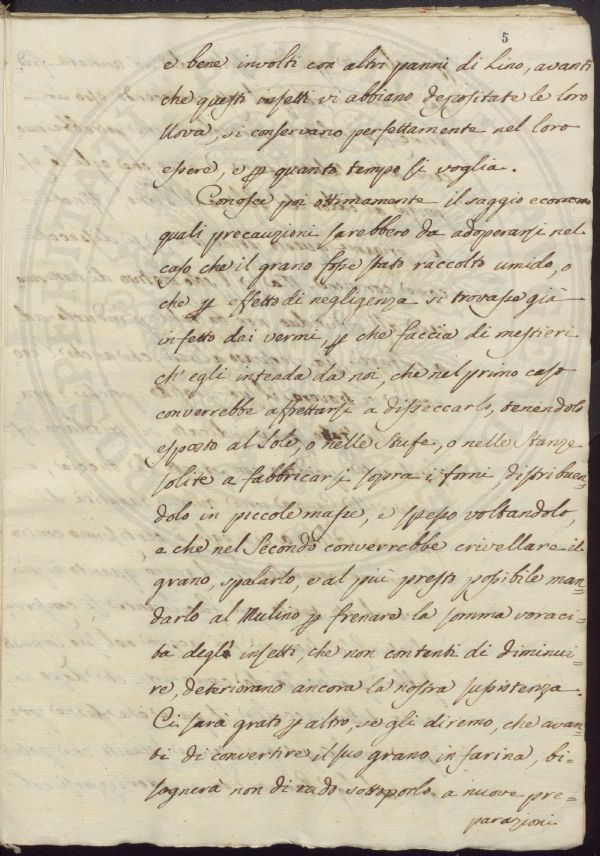 5
e bene involti con altri panni di Lino, avanti
che questi insetti vi abbiano depositate le loro
Uova, si conservano perfettamente nel loro
essere, e p quanto tempo si voglia.
Conosce poi ottimamente il saggio economo
quali precauzioni sarebbero da adoperarsi nel
caso che il grano fosse stato raccolto umido, o
che p effetto di negligenza si trovasse già
infetto dai vermi, p che faccia di mestieri
ch' egli intenda da noi, che nel primo caso
converrebbe affrettarsi a disseccarlo, tenendolo
esposto al Sole, o nelle Stufe, o nelle Stanze
solite a fabbricarsi sopra i forni, distribuen=
dolo in piccole masse, e spesso voltandolo,
e che nel Secondo converrebbe crivellare il
grano, spalarlo, e al più presto possibile man=
darlo al Mulino p frenare la somma voraci=
tà degli insetti, che non contenti di diminui=
re, deteriorano ancora la nostra sussistenza.
Ci sarà grato p altro, se gli diremo, che avan=
ti di convertire il suo grano in farina, bi=
sognerà non di rado sottoporlo a nuove pre=
parazioni